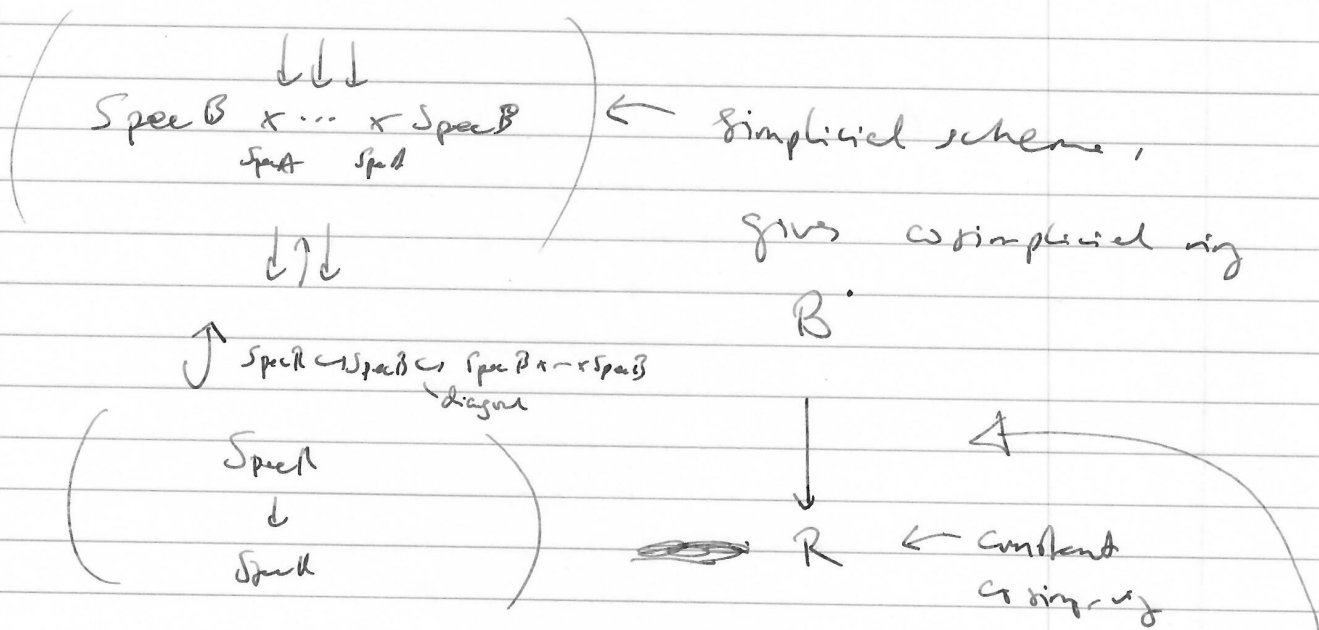 ↓↓↓
Spec B × ... × Spec B ← simplicial scheme,
Spec A Spec A
gives cosimplicial ring
↓↑↓
B•
Spec R ↪ Spec B ↪ Spec B × ... × Spec B
diagonal
Spec R
↓
Spec R
R ← constant
cosimp. ring